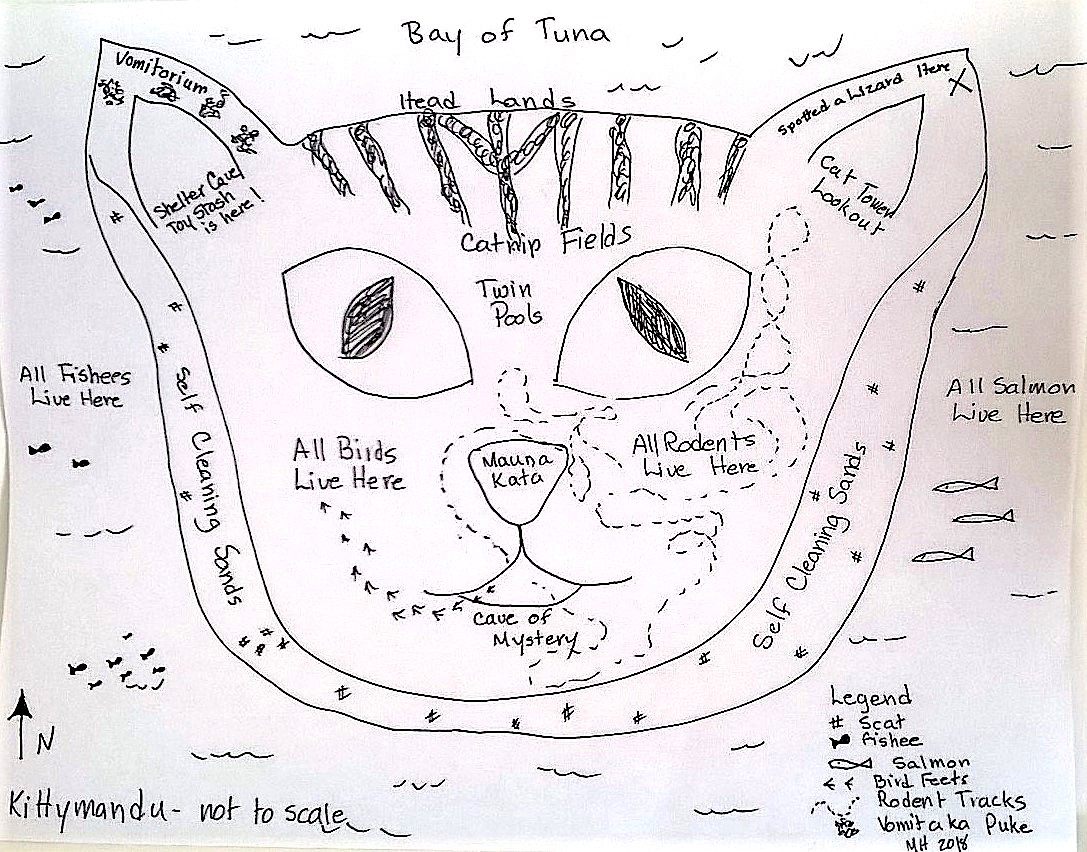 Bay of Tuna
Vomitorium
Head Lands
Spotted a Wizard Here
X
Shelter Cave/
Toy Stash
is here!
Cat Tower
Lookout
Catnip Fields
Twin
Pools
All Fishees
Live Here
All Salmon
Live Here
All Birds
Live Here
Mauna
Kata
All Rodents
Live Here
Self Cleaning Sands
Self Cleaning Sands
Cave of
Mystery
N
Legend
# Scat
fishee
Salmon
Bird Feets
Rodent Tracks
Vomit aka Puke
MH 2018
Kittymandu - not to scale